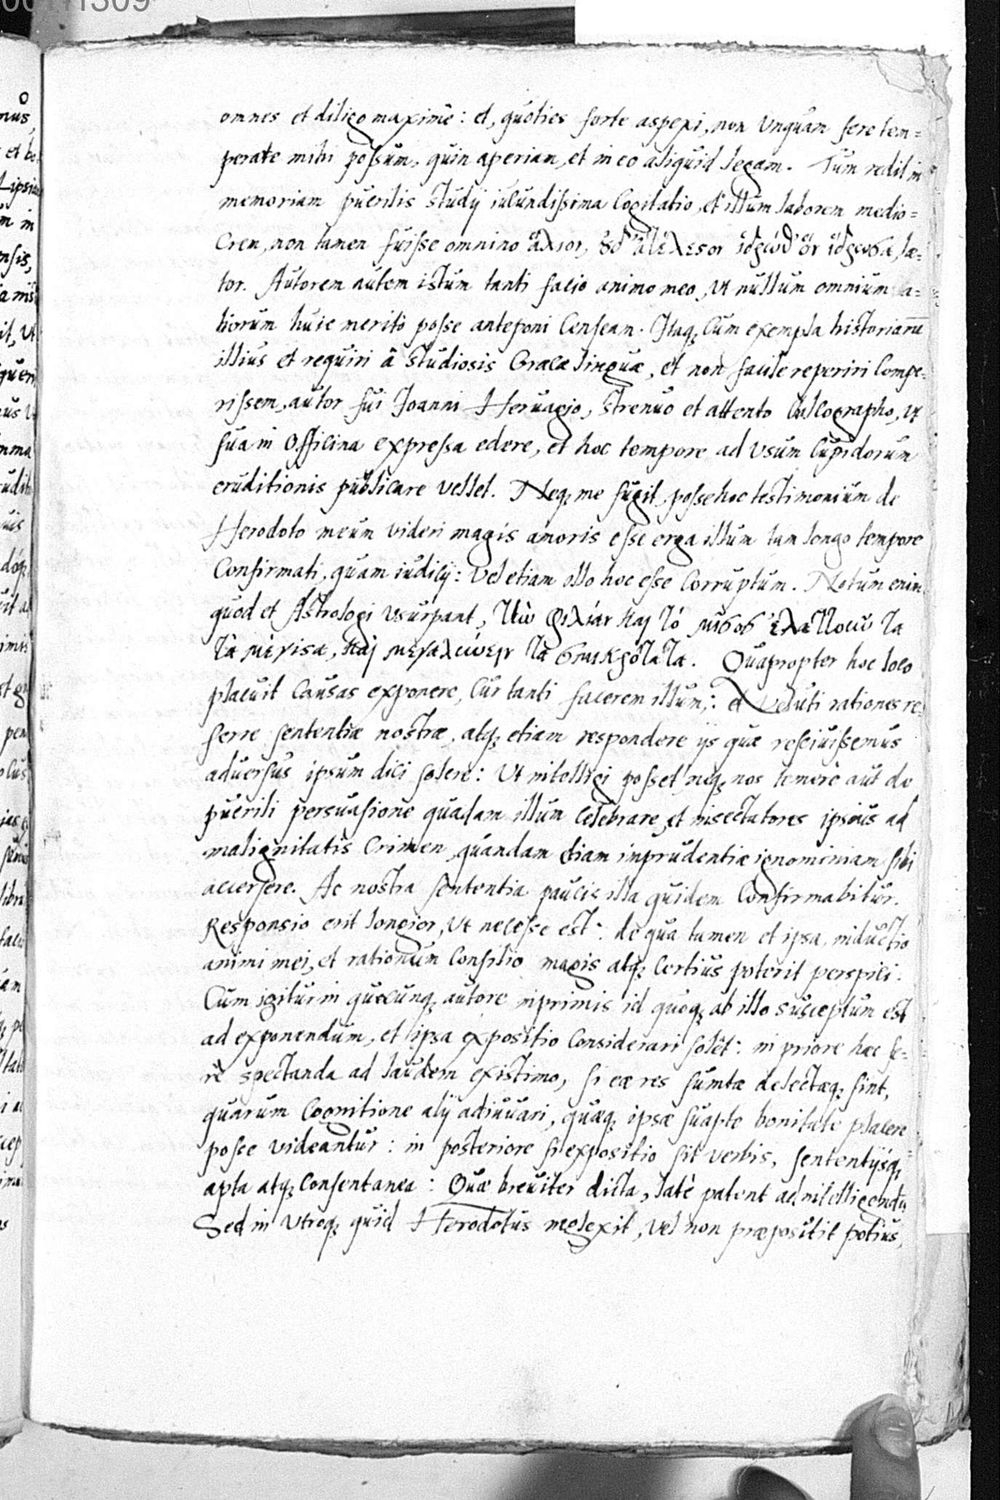 omnes et diligo maximè: et, quoties forte aspexi, non unquam fere tem=
perare mihi possum, quin aperiam, et in eo aliquid legam. Tum redit in
memoriam puerilis studij iucundissima cogitatio, et illum laborem medio=
crem, non tamen fuisse omnino ἅλιον, οὐδ' ἀτέλεστον ἱδρῶθ' ὃν ἵδρωσα, læ=
tor. Autorem autem istum tanti facio animo meo, ut nullum omnium
huic meritò posse anteponi censeam. Itaq; cum exempla historiarū
illius et requiri à studiosis Græcæ linguæ, et non facile reperiri compe=
rissem, autor fui Joanni Heruagio, strenuo et attento Callographo, ut
sua in officina expressa edere, et hoc tempore ad usum cupidorum
eruditionis publicare vellet. Neq; me fugit, posse hoc testimonium de
Herodoto meum videri magis amoris esse erga illum tam longo tempore
confirmati, quam iudicij: vel etiam illo hoc esse corruptum. Notum enim
quod et Astrologi usurpant, τὴν φιλίαν καὶ τὸ μῖσος ἐλαττοῦν τα
τὰ μέγιστα, καὶ μεγαλύνειν τὰ σμικρότατα. Quapropter hoc loco
placuit causas exponere, cur tanti facerem illum: et veluti rationes re
ferre sententiæ nostræ, atq; etiam respondere ijs quæ resciuissemus
aduersus ipsum dici solere: ut intelligi posset neq; nos temerè aut de
puerili persuasione quadam illum celebrare, et insectatores ipsius ad
malignitatis crimen, quandam etiam imprudentiæ ignominiam sibi
accersere. Ac nostra sententia paucis illa quidem confirmabitur.
Responsio erit longior, ut necesse est: de qua tamen et ipsa, inductio
animi mei, et rationum consilio magis atq; certius poterit perspici.
Cum igitur in quocunq; autore inprimis id quoq; ab illo susceptum est
ad exponendum, et ipsa expositio considerari solet: in priore hæc fe=
rè spectanda ad laudem existimo, si eæ res sumtæ delectæq; sint,
quarum cognitione alij adiuuari, quæq; ipsæ suapte bonitate placere
posse videantur: in posteriore si expositio sit verbis, sententijsq;
apta atq; consentanea: Quæ breuiter dicta, latè patent ad intelligendū
Sed in utroq; quid Herodotus neglexit, vel non præpositit potius,